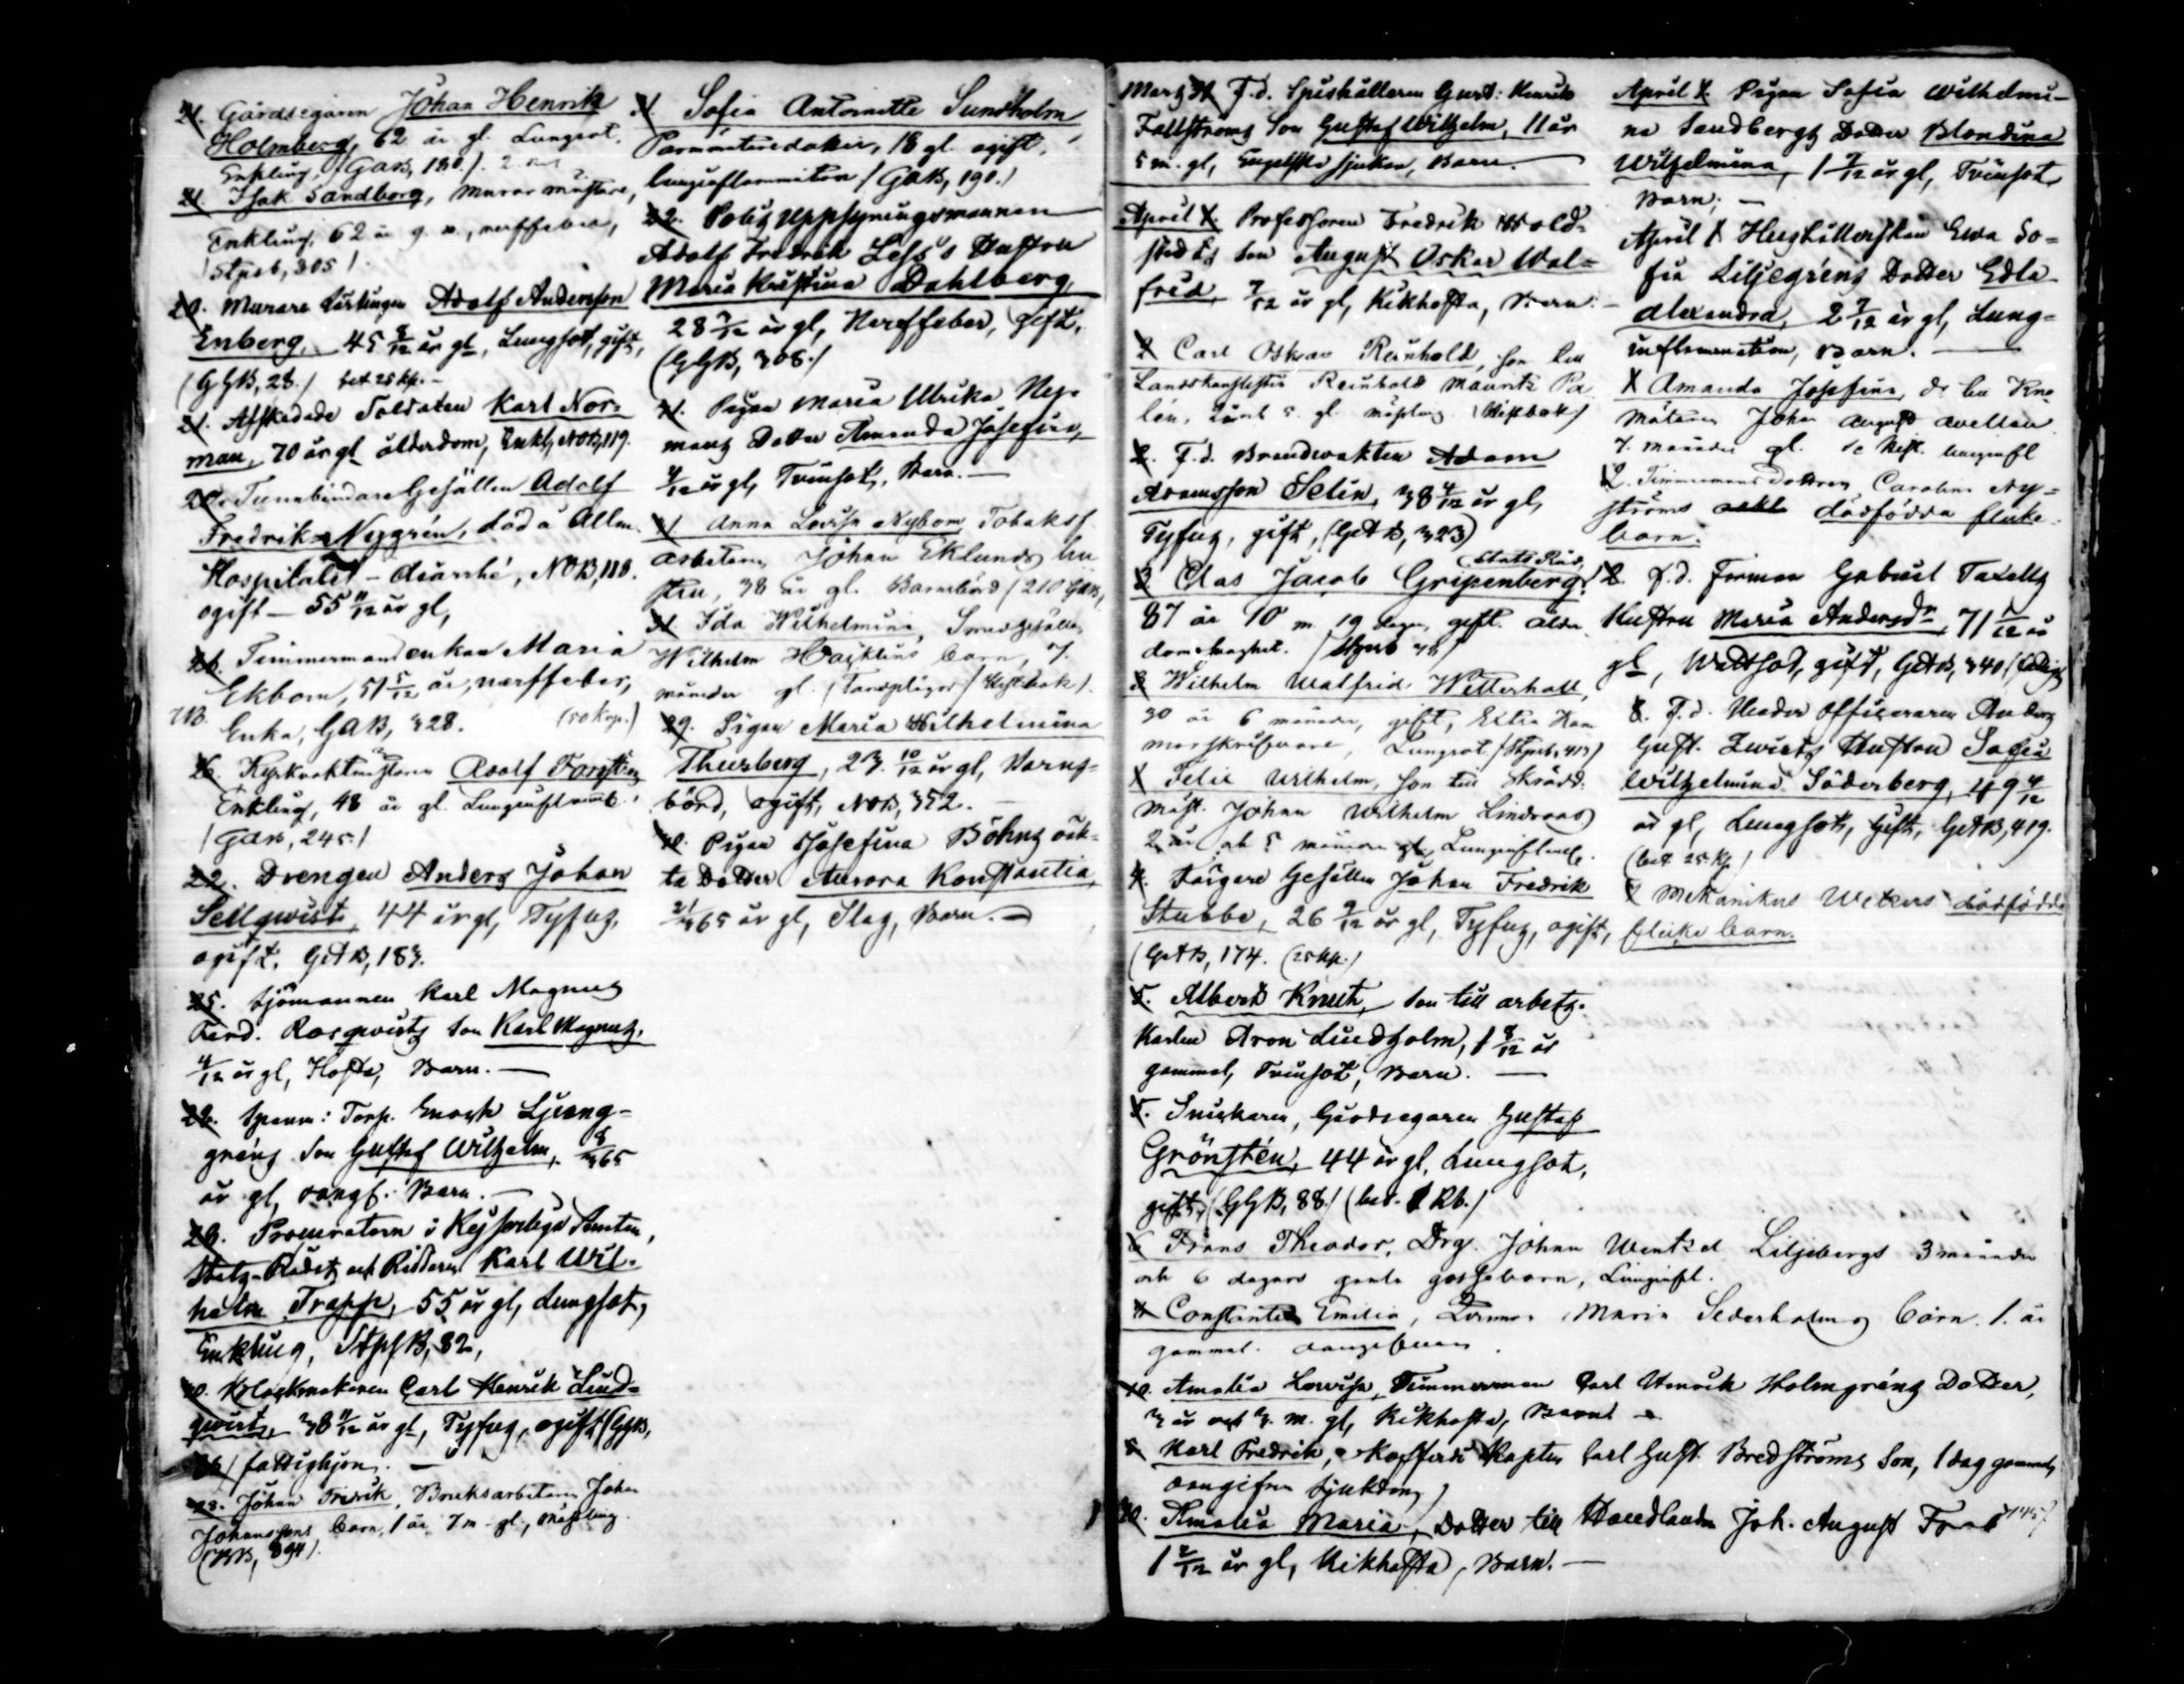 21. Gårdsegaren Johan Henrik
Holmberg, 62 år gl. Lungsot.
Enkling, (GAB, 180.)
21. Isak Sandborg, murar mästare,
Enkling, 62 år g. m., nerffeber,
(Stpsb, 305).
20. Murare Lärlingen Adolf Andersson
Enberg, 45 8/12 år gl, Lungsot, gift,
(GGB, 28.) bet 25 kp. -
21. Afskedade Soldaten Karl Nor-
man, 70 år gl ålderdom, Enkl, NOB, 119.
20. Tunnbindare Gesällen Adolf
Fredrik Nygrén, död å Allm.
Hospitalet - diarrhé, NOB, 118.
ogift - 55 11/12 år gl,
26. Timmermansenkan Maria
Ekbom, 51 5/12 år, nerffeber,
Enka, GAB, 328. (50 kop.)
26. Kyrkvaktmästaren Adolf Forsström
Enkling, 48 år gl. Lunginflamt.
(GAB, 245.)
22. Drengen Anders Johan
Sellqwist, 44 år gl, Tyfus,
ogift. GAB, 183.
25. Sjömannen Karl Magnus
Ferd. Rosqwists Son Karl Magnus,
4/12 år gl, Hosta, Barn. —
26. Spanm: Torp. Enoch Ljung-
gréns Son Gustaf Wilhelm, 8/365
år gl, oangf. Barn. —
29. Procuratorn i Kejserliga Senaten,
Stats-Rådet och Riddaren Karl Wil-
helm Trapp, 55 år gl, Lungsot,
Enkling, StpsB, 82,
20. Klockmakaren Carl Henrik Lind-
qwist, 38 11/12 år gl, Tyfus, ogift (GGB,
fattighjon. —
28. Johan Fredrik, Bruksarbetaren Johan
Johanssons barn, 1 år 7 m. gl, mässling.
(NB, 894).
31 Sofia Antoinette Sundholm
18 gl. ogift,
lunginflammation (GAB, 190.)
22. Politz Uppsyningsmannen
Adolf Fredrik Less's Hustru
Maria Kristina Dahlberg,
28 3/12 år gl, Nerffeber, gift,
(GGB, 308.)
21. Pigan Maria Ulrika Ney-
mans Dotter Amanda Josefina,
4/12 år gl, Trinsot, Barn. —
31 Anna Lovisa Nybom, Tobaksf.
arbetaren Johan Eklunds hu-
stru, 38 år gl. Barnsbörd (210 GAB)
31 Ida Wilhelmina, Smedgesällen
Wilhelm Hägklins barn, 7
månader gl. (Tandplågor) Mistbok).
29. Pigan Maria Wilhelmina
Thusberg, 23 10/12 år gl, Barns-
börd, ogift, NOB, 352. —
20. Pigan Josefina Böhns oäk-
ta Dotter Aurora Konstantia,
21/365 år gl, Slag, Barn. —
Marz 31 F.d. Spishållaren Gust: Henrik
Fallströms Son Gustaf Wilhelm, 11 år
5 m. gl, Engelska sjukan, Barn. —
April 1. Professoren Fredrik Wold-
stedts Son August Oskar Wal-
frid, 7/12 år gl, Kikhosta, Barn. —
2 Carl Oskar Reinhold, son till
Landskanslisten Reinhold Mauritz Pa-
lén, gl. mässling (Mistbok)
2. F.d. Brandvakten Adam
Adamsson Selin, 38 4/12 år gl,
Tyfus, gift, (GAB, 323)
Stats Råd,
3 Clas Jacob Gripenberg,
87 år 10 m. 19 dagar, gift. ålder-
domsvaghet.
3 Wilhelm Walfrid Witterhall,
30 år 6 månader, gift, Extra Kam-
marskrifvare, Lungsot. (Stpsb, 413)
1 Felix Wilhelm, son till Skrädd.
mäst. Johan Wilhelm Lindroos,
2 år och 5 månader gl, Lunginflam.
4. Färgare Gesällen Johan Fredrik
Stubbe, 26 9/12 år gl, Tyfus, ogift,
(GAB, 174. (25 kp.)
5. Albert Knut, son till arbets-
karlen Aron Lindholm, 1 8/12 år
gammal, Trinsot, Barn. —
5. Snickaren, Gårdsegaren Gustaf
Grönstén, 44 år gl, Lungsot,
gift, (GGB, 88.) (bet. 1 Rb.)
6 Frans Theodor, Drg. Johan Wentzel Liljebergs 3 månader
och 6 dagars gamla gossebarn, Lunginfl.
11 Constantia Emilia, Maria Sederholms barn. 1. år
gammal. oangifven.
10. Amalia Lovisa, Timmerman Carl Henrik Holmgréns Dotter,
3 år och 3. m. gl, Kikhosta, Barn. —
8 Karl Fredrik, Kofferdi Kapten Carl Gust. Bredströms Son, 1 dag gammal,
oangifven sjukdom,
10. Amalia Maria, Dotter till Handlanden Joh. August
1 2/12 år gl, Kikhosta, Barn. —
April 1. Pigan Sofia Wilhelmi-
na Sandbergs Dotter Blondina
Wilhelmina, 1 7/12 år gl, Trinsot,
Barn; —
April 1 Hushållerskan Ewa So-
fia Liljegréns Dotter Edla
Alexandra, 2 7/12 år gl, Lung-
inflammation, Barn. —
1 Amanda Josefina, dr till
Johan August Avellan
7. månader gl.
2. Timmermansdottren Carolina Ny-
ströms oäkta dödfödda flicke-
barn.
2. F.d. Forman Gabriel Taxells
Hustru Maria Andersdr, 71 1/12 år
gl, Wattsot, gift, GAB, 340 (fattig)
8. F.d. Underofficeraren Anders
Gust. Zwists Hustru Sofia
Wilhelmina Söderberg, 49 4/12
år gl, Lungsot, Gift, GAB, 419.
(bet. 25 kp.)
Mekanikus Wekens dödfödda
flicke barn.